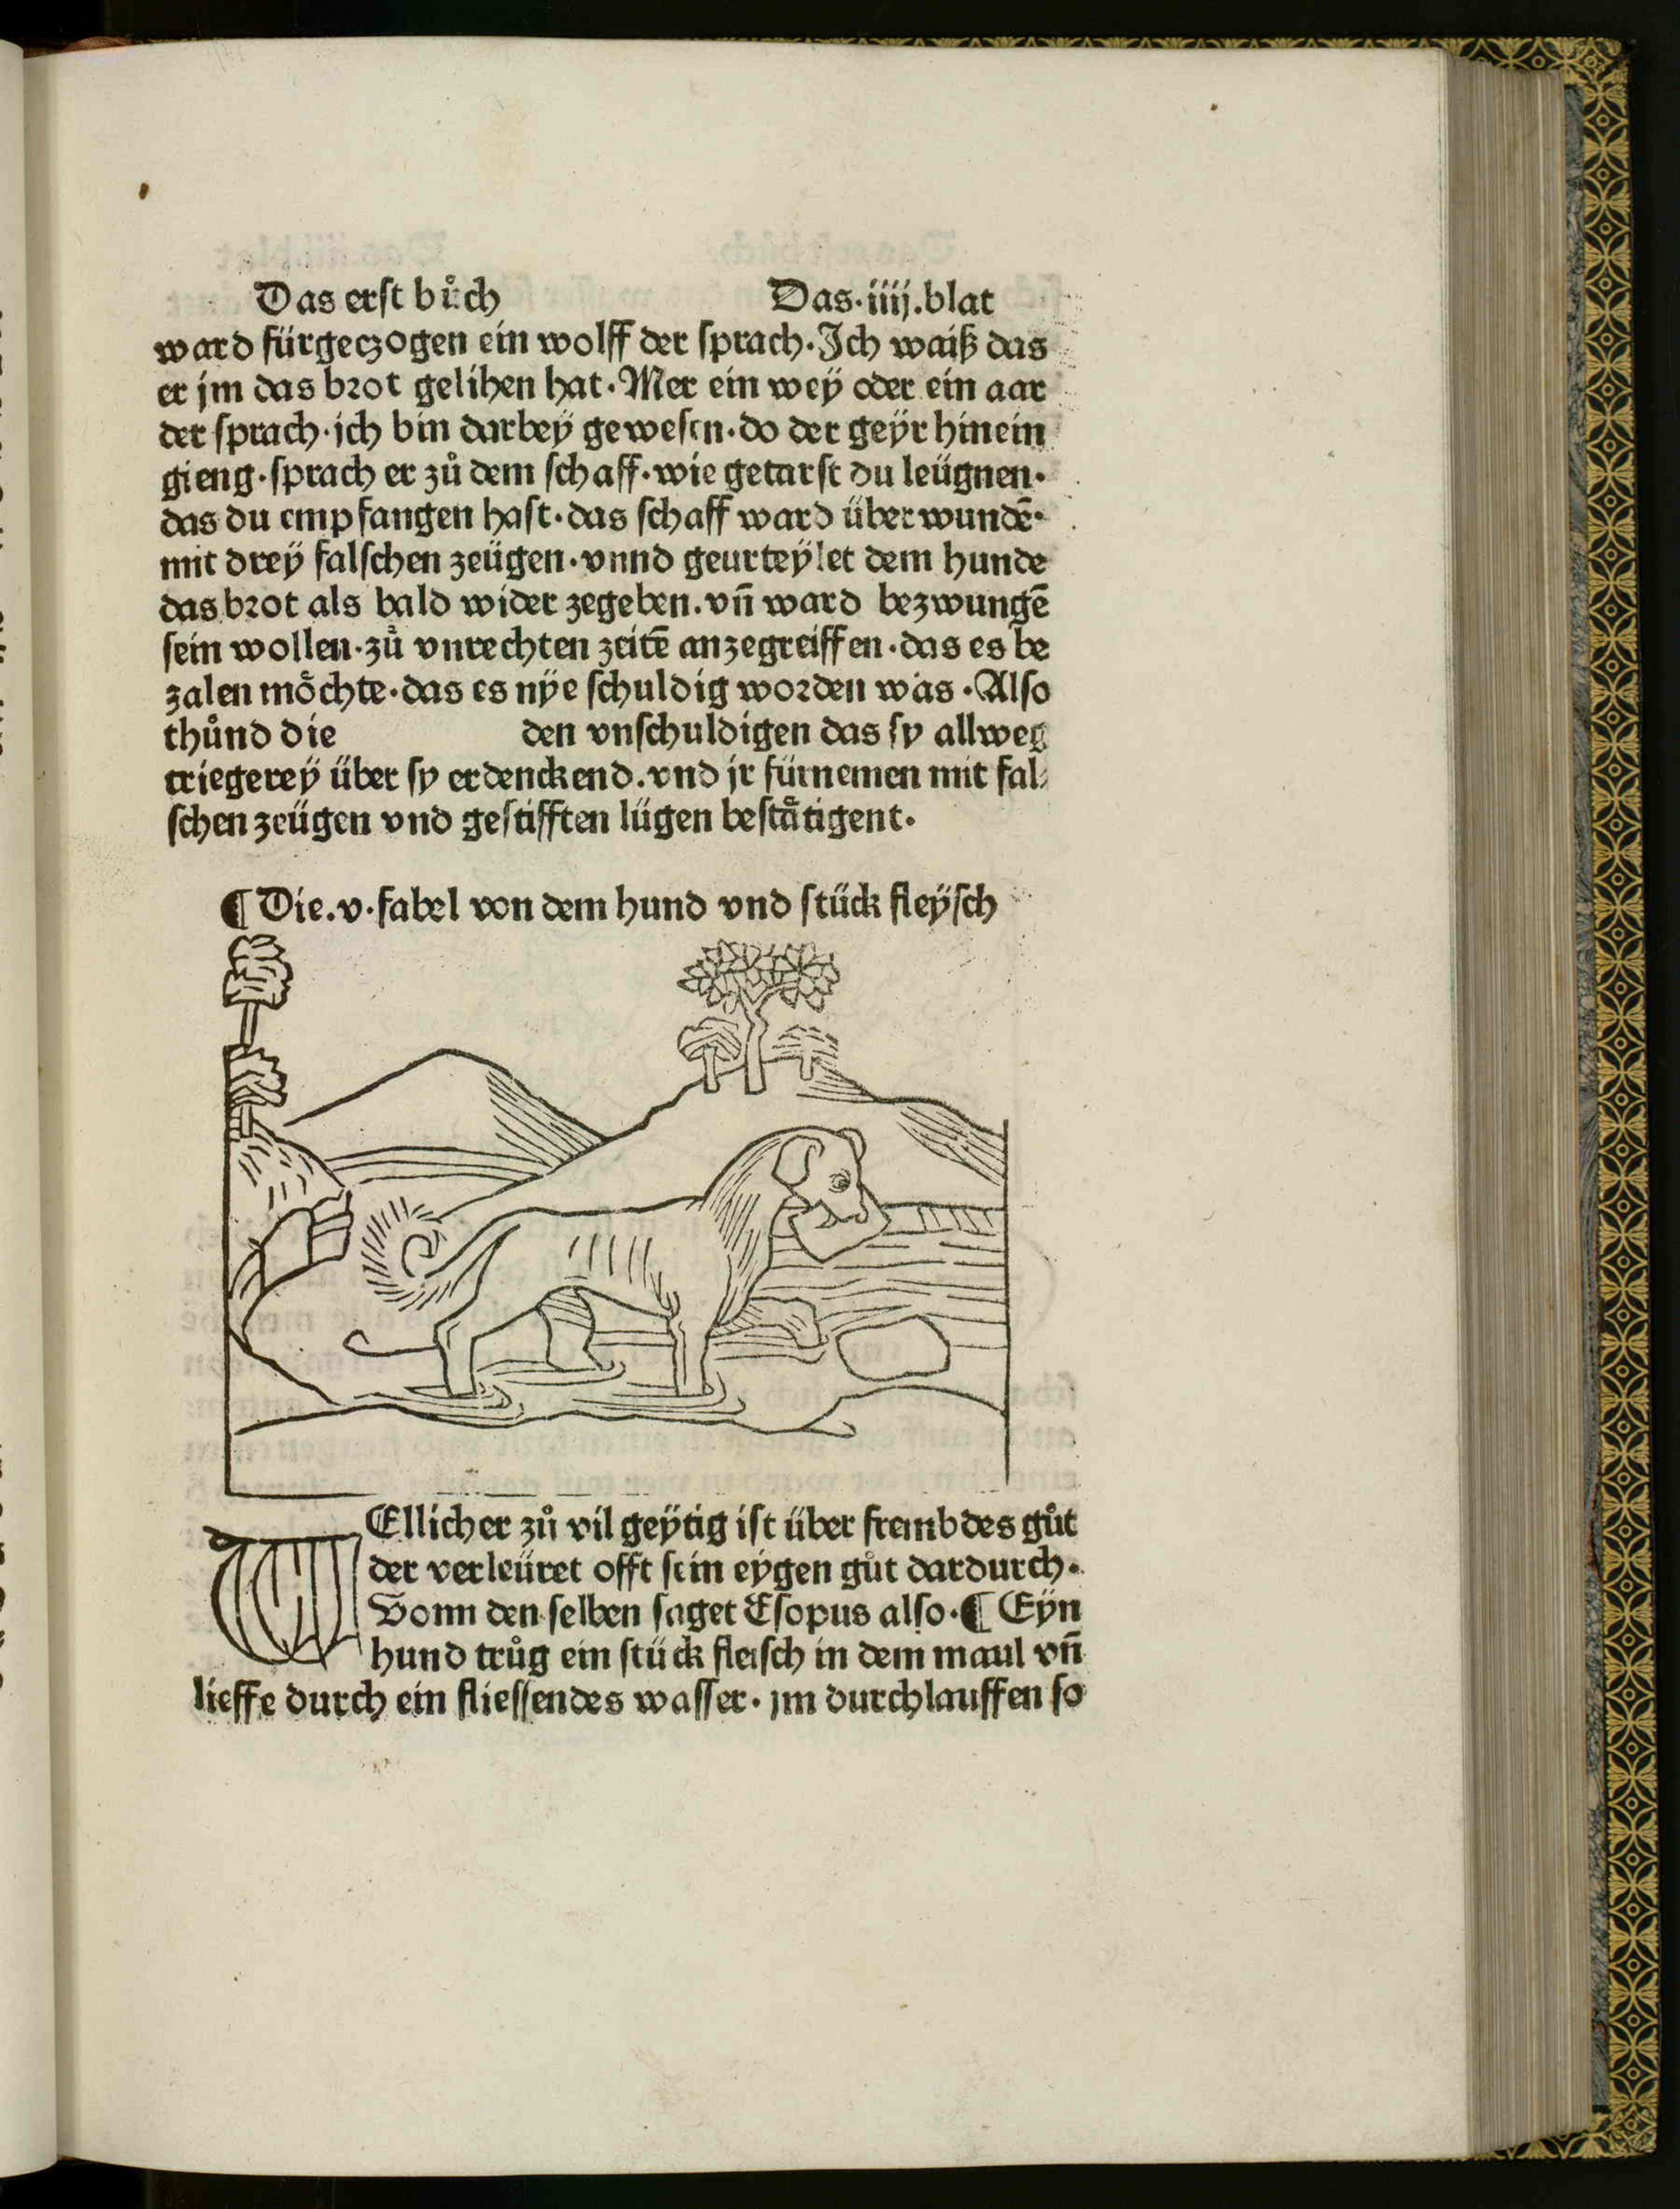 Das erst bůch Das·iiij.blat
ward fürgeczogen ein wolff der ſprach·Ich waiß das
er jm das brot gelihen hat·Mer ein weÿ oder ein aar
der ſprach·ich bin darbeÿ geweſen·do der geÿr hinein
gieng·ſprach er zů dem ſchaff·wie getarſt du leügnen·
das du empfangen haſt·das ſchaff ward überwundē·
mit dreÿ falſchen zeügen·vnnd geurteÿlet dem hunde
das brot als bald wider zegeben.vn̄ ward bezwungē
ſein wollen·zů vnrechten zeitē anzegreiffen·das es be
zalen möchte·das es nÿe ſchuldig worden was·Alſo
thůnd die den vnſchuldigen das ſy allweg
triegereÿ über ſy erdenckend.vnd jr fürnemen mit fal⸗
ſchen zeügen vnd geſtifften lügen beſtåtigent·
¶ Die.v·fabel von dem hund vnd ſtück fleÿſch
WEllicher zů vil geÿtig iſt über frembdes gůt
der verleüret offt ſein eÿgen gůt dardurch·
Vonn den ſelben ſaget Eſopus alſo·¶ Eÿn
hund trůg ein ſtück fleiſch in dem maul vn̄
lieffe durch ein flieſſendes waſſer·jm durchlauffen ſo